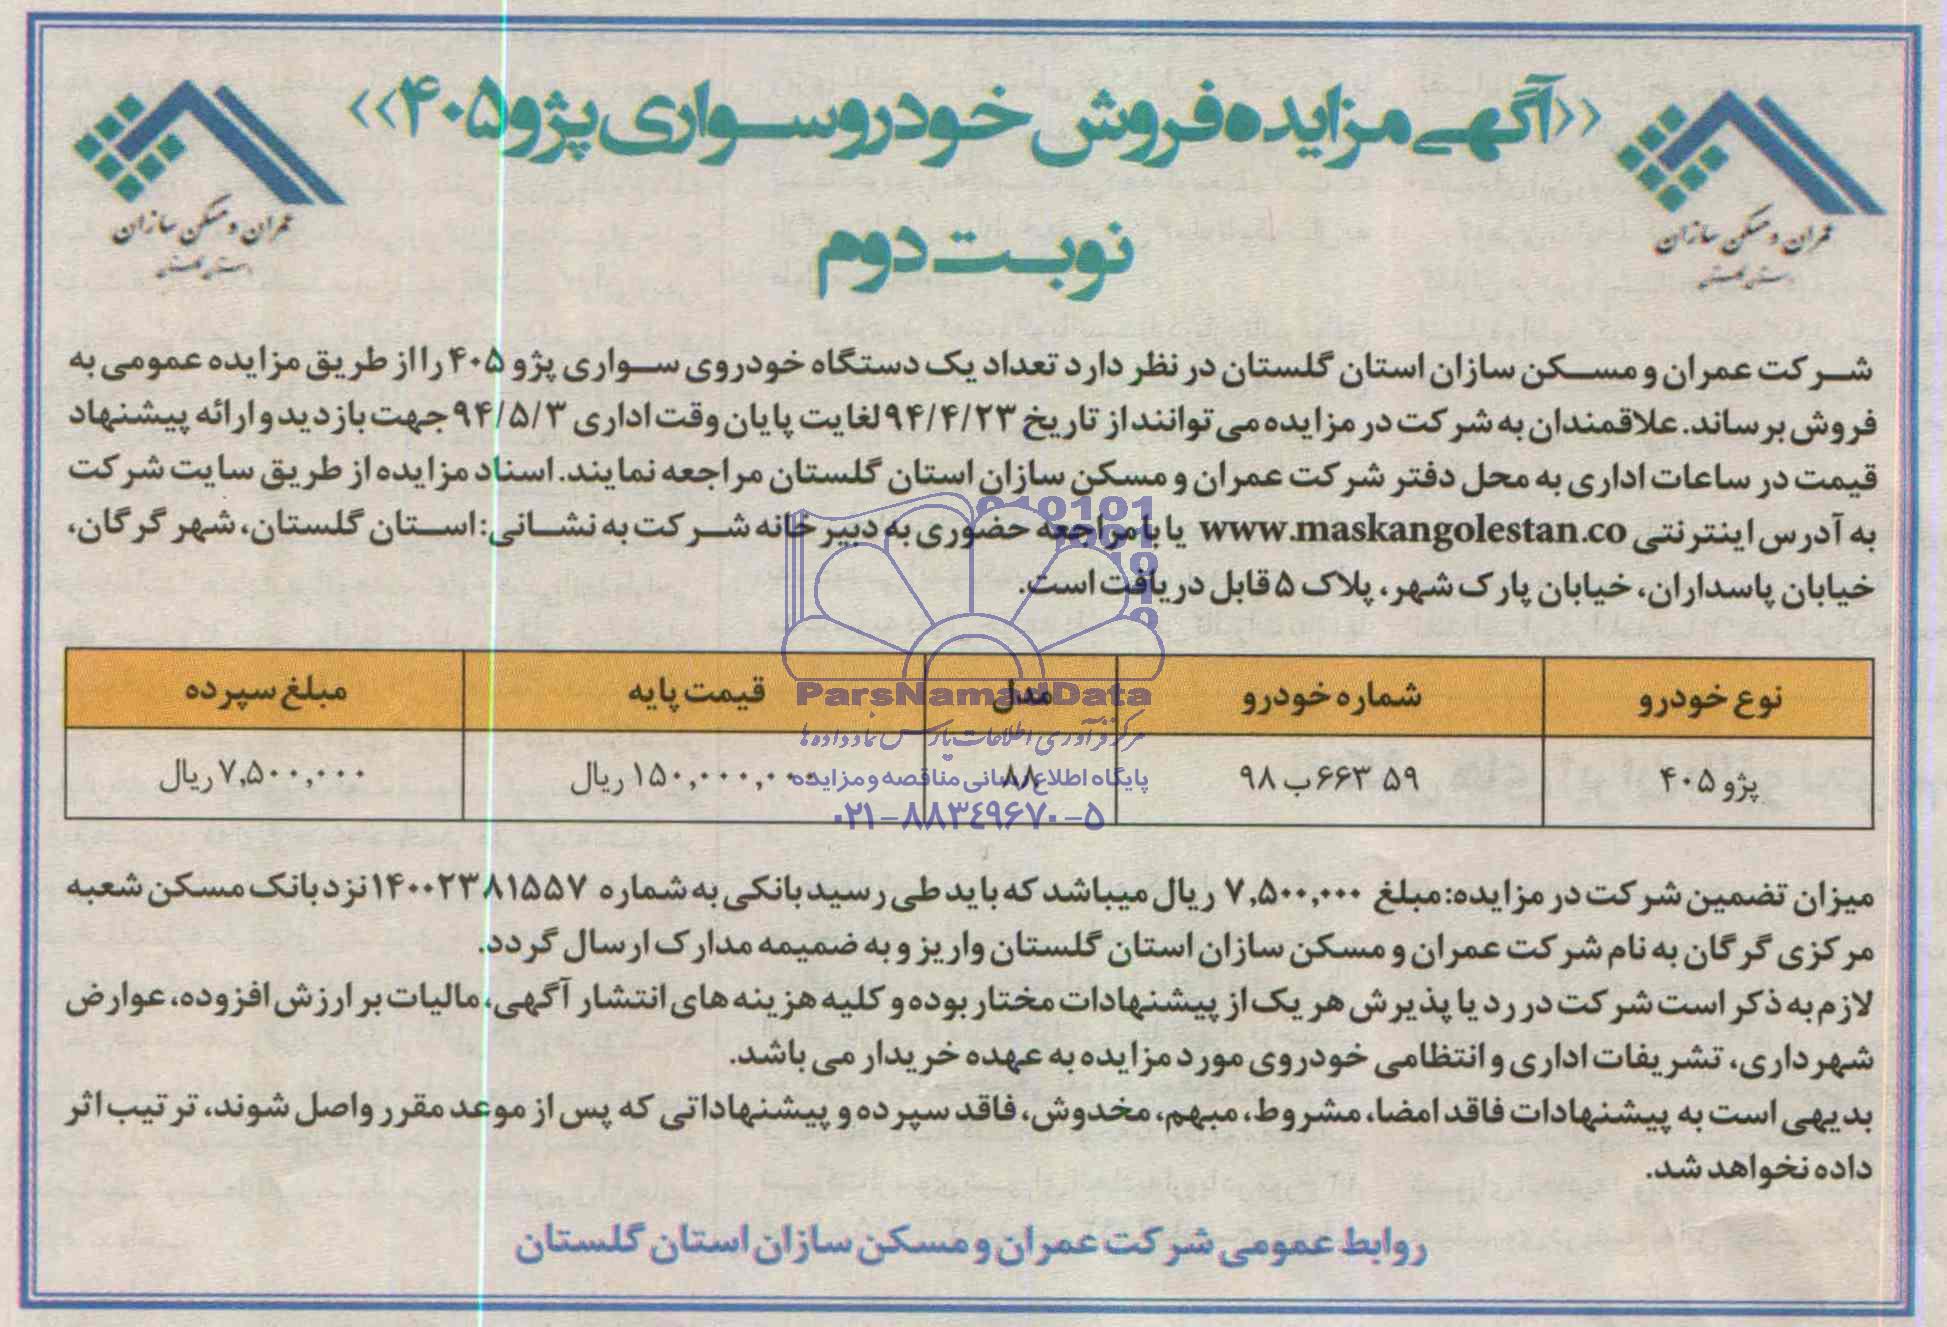 «آگهی مزایده فروش خودرو سواری پژو ۴۰۵»
نوبت دوم
عمران و مسکن سازان
استان گلستان
عمران و مسکن سازان
استان گلستان
شرکت عمران و مسکن سازان استان گلستان در نظر دارد تعداد یک دستگاه خودروی سواری پژو ۴۰۵ را از طریق مزایده عمومی به
فروش برساند. علاقمندان به شرکت در مزایده می توانند از تاریخ ۹۴/۴/۲۳ لغایت پایان وقت اداری ۹۴/۵/۳ جهت بازدید و ارائه پیشنهاد
قیمت در ساعات اداری به محل دفتر شرکت عمران و مسکن سازان استان گلستان مراجعه نمایند. اسناد مزایده از طریق سایت شرکت
به آدرس اینترنتی www.maskangolestan.co یا با مراجعه حضوری به دبیرخانه شرکت به نشانی: استان گلستان، شهر گرگان،
خیابان پاسداران، خیابان پارک شهر، پلاک ۵ قابل دریافت است.
نوع خودرو شماره خودرو مدل قیمت پایه مبلغ سپرده
پژو ۴۰۵ ۵۹ ۶۶۳ب ۹۸ ۸۸ ۱۵۰,۰۰۰,۰۰۰ ریال ۷,۵۰۰,۰۰۰ ریال
ParsNamadData
مرکز فرآوری اطلاعات پارس نماد داده ها
پایگاه اطلاع رسانی مناقصه و مزایده
۰۲۱-۸۸۳۴۹۶۷۰-۵
میزان تضمین شرکت در مزایده: مبلغ ۷,۵۰۰,۰۰۰ ریال میباشد که باید طی رسید بانکی به شماره ۱۴۰۰۲۳۸۱۵۵۷ نزد بانک مسکن شعبه
مرکزی گرگان به نام شرکت عمران و مسکن سازان استان گلستان واریز و به ضمیمه مدارک ارسال گردد.
لازم به ذکر است شرکت در رد یا پذیرش هر یک از پیشنهادات مختار بوده و کلیه هزینه های انتشار آگهی، مالیات بر ارزش افزوده، عوارض
شهرداری، تشریفات اداری و انتظامی خودروی مورد مزایده به عهده خریدار می باشد.
بدیهی است به پیشنهادات فاقد امضا، مشروط، مبهم، مخدوش، فاقد سپرده و پیشنهاداتی که پس از موعد مقرر واصل شوند، ترتیب اثر
داده نخواهد شد.
روابط عمومی شرکت عمران و مسکن سازان استان گلستان